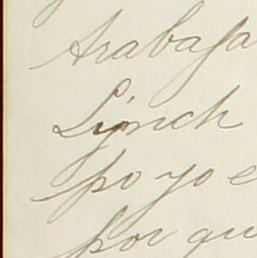 trabaja
Lynch
po yo e
por qu